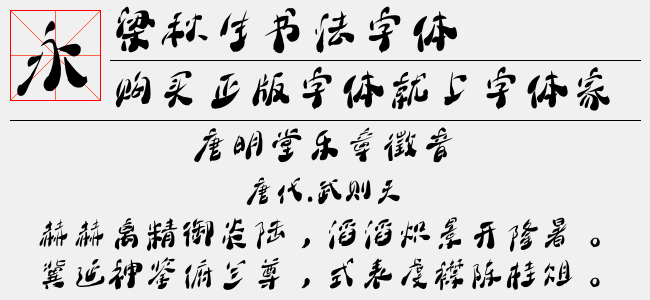 永
梁秋生书法字体
购买正版字体就上字体家
唐明堂乐章徵音
唐代.武则天
赫赫离精御炎陆，滔滔炽景开隆暑。
冀延神鉴俯兰尊，式表虔襟陈桂俎。